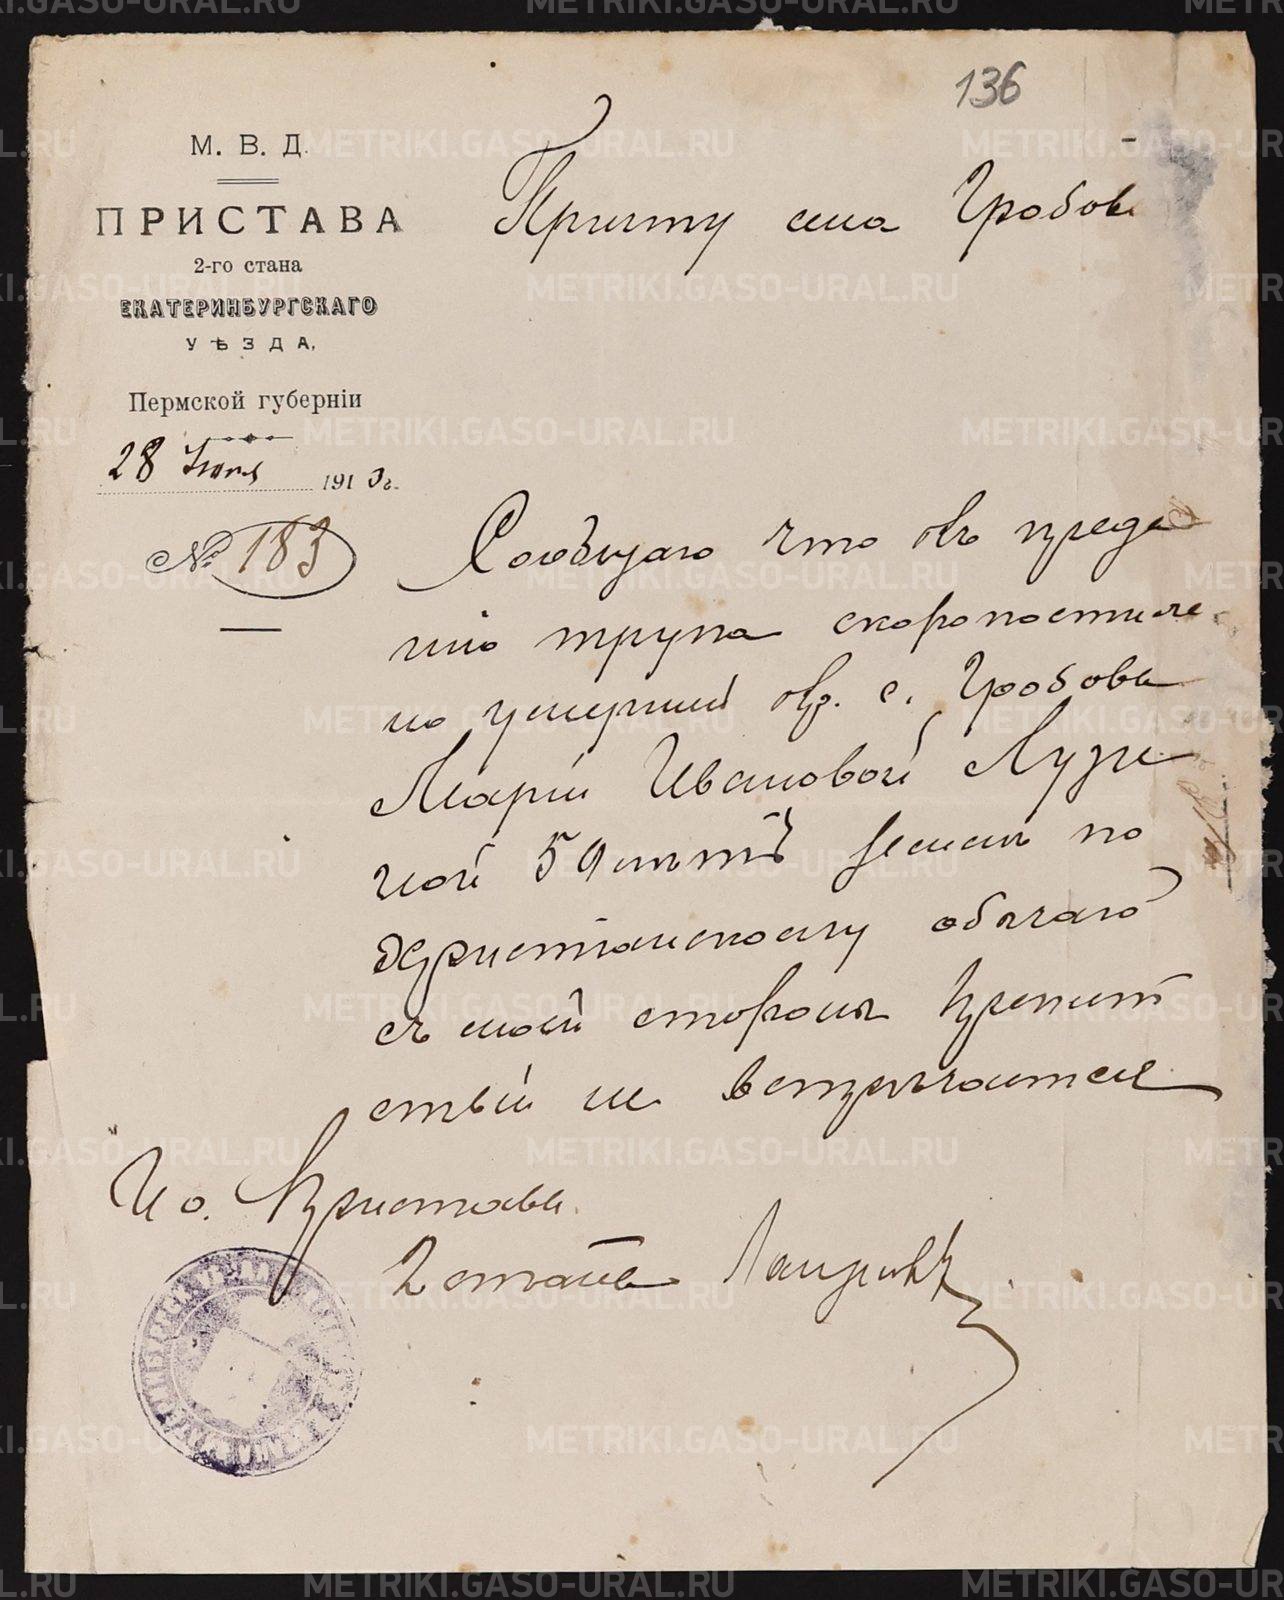 136
М. В. Д.
ПРИСТАВА
2-го стана
ЕКАТЕРИНБУРГСКАГО
УѢЗДА,
Пермской губерніи
28 Іюня 1913 г.
№ 183
Причту села Гробов
Сообщаю что къ преда
нію трупа скоропостиже
но умершей кр. с. Гробова
Маріи Ивановой Лузи
ной 59 лѣтъ землѣ по
христіанскому обычаю
съ моей стороны препят
ствій не встрѣчается
И о. Пристава
2 стана
METRIKI.GASO-URAL.RU